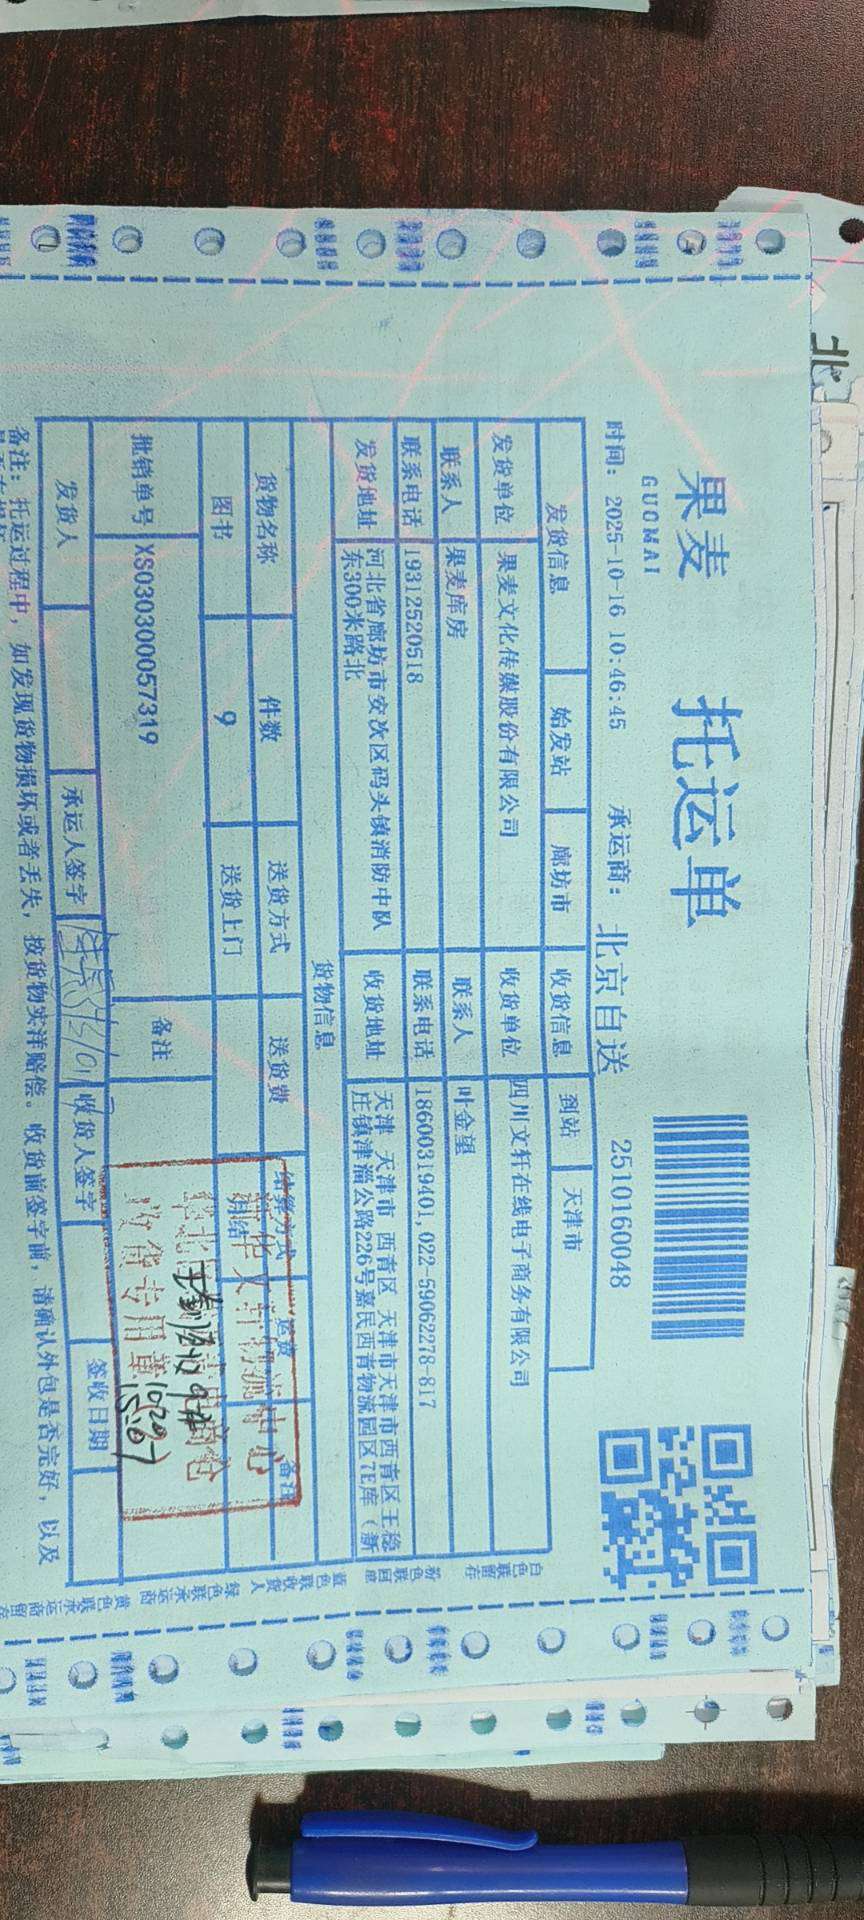 果麦
GUOMAI
托运单
时间： 2025-10-16 10:46:45 承运商： 北京自送 2510160048
发货信息 始发站 廊坊市 收货信息 到站 天津市
发货单位 果麦文化传媒股份有限公司 收货单位 四川文轩在线电子商务有限公司
联系人 果麦库房 联系人 叶金望
联系电话 19312520518 联系电话 18600319401,022-59062278-817
发货地址 河北省廊坊市安次区码头镇消防中队东300米路北 收货地址 天津 天津市 西青区 天津市天津市西青区王稳庄镇津淄公路226号嘉民西青物流园区7E库（新
货物信息
货物名称 件数 送货方式 送货费 结算方式 运费 备注
图书 9 送货上门 月结
批销单号 XS030300057319 备注
发货人 承运人签字 收货人签字 签收日期
备注：托运过程中，如发现货物损坏或者丢失，按货物实洋赔偿。收货前签字前，请确认外包是否完好，以及
白色联留存
粉色联回单
蓝色联收货人
绿色联承运商
黄色联承运商留存
收货专用章
15:07
北